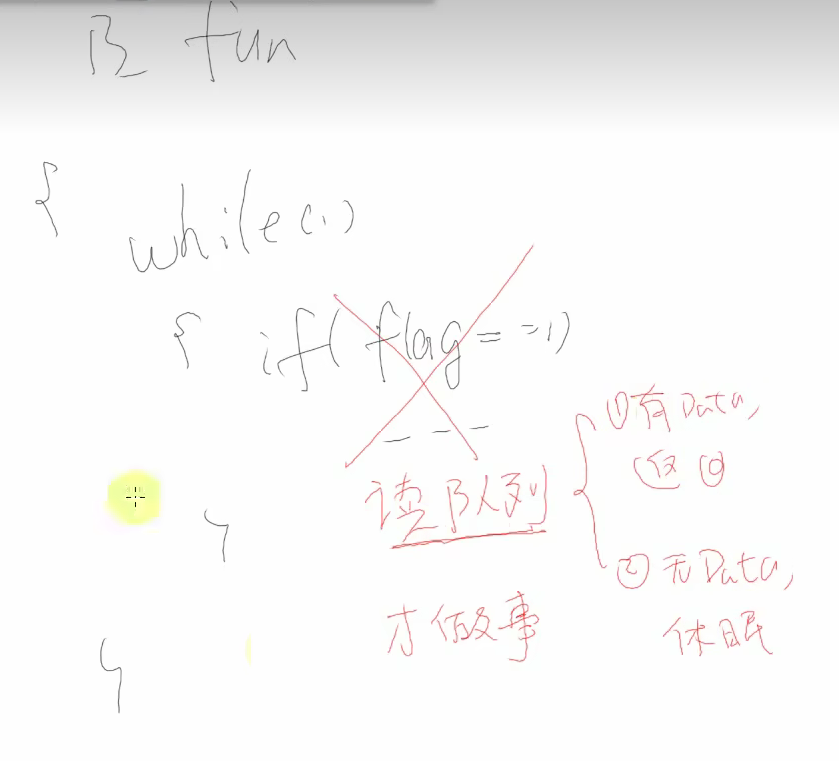 B fun
{
while(1)
{ if(flag==1)
- - -
读队列
{ ①有Data,
返回
②无Data,
休眠
才做事
}
}